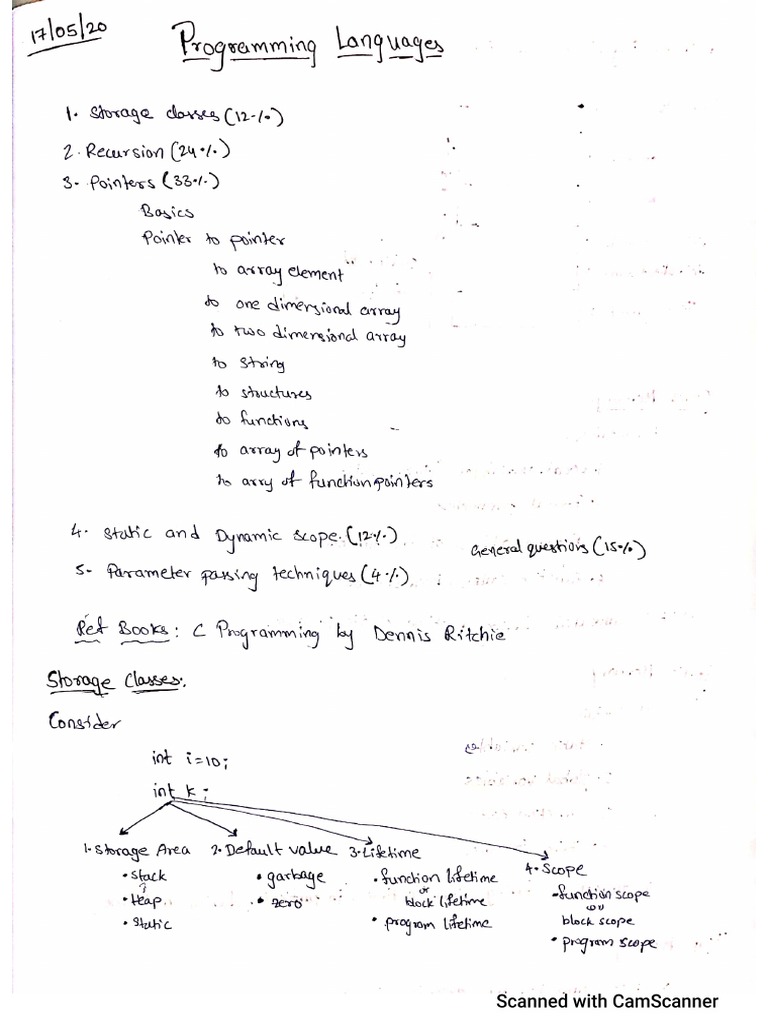 17/05/20
Programming Languages
1. Storage classes (12%)
2. Recursion (24%)
3. Pointers (33%)
Basics
Pointer to pointer
to array element
to one dimensional array
to two dimensional array
to string
to structures
to functions
to array of pointers
to arry of function pointers
4. Static and Dynamic scope. (12%)
General questions (15%)
5. Parameter passing techniques (4%)
Ref Books: C Programming by Dennis Ritchie
Storage Classes:
Consider
int i=10;
int k;
1. Storage Area 2. Default value 3. Lifetime 4. Scope
• stack • garbage • function lifetime • function scope
or
• Heap • zero block lifetime block scope
• static • program lifetime • program scope
Scanned with CamScanner